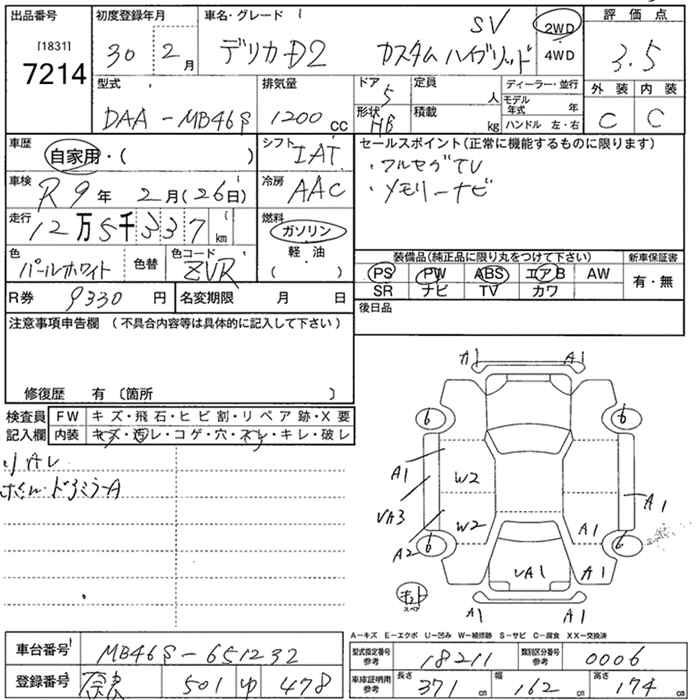 出品番号 初度登録年月 車名・グレード 評価点
[1831] 7214 30年 2月 デリカD2 カスタム ハイブリッド SV 2WD 4WD 3.5
型式 排気量 ドア 定員 ディーラー・並行 外装 内装
DAA-MB46S 1200cc 5 人 モデル年式 年 C C
形状 HB 積載 kg ハンドル 左・右
車歴 自家用・( ) シフト IAT セールスポイント(正常に機能するものに限ります)
・フルセグTV
車検 R9年 2月(26日) 冷房 AAC ・メモリーナビ
走行 12万5千337km 燃料 ガソリン
軽・油
( )
色 パールホワイト 色替 色コード ZVR 装備品(純正品に限り丸をつけて下さい) 新車保証書
PS PW ABS エアB AW 有・無
SR ナビ TV カワ
R券 9330円 名変期限 月 日 後日品
注意事項申告欄 (不具合内容等は具体的に記入して下さい)
修復歴 有 〔箇所 〕
検査員 FW キズ・飛石・ヒビ割・リペア跡・X要
記入欄 内装 キズ・汚レ・コゲ・穴・スレ・キレ・破レ
A1 A1
6 6
A1 W2
VA3 W2 A1
A2 A1
6 6
VA1 A1
スペア
A1 A1
A-キズ E-エクボ U-凹み W-補修跡 S-サビ C-腐食 XX-交換済
車台番号 MB46S-651232 型式指定番号 参考 18211 類別区分番号 参考 0006
登録番号 奈良 501 ゆ 478 車庫証明用 参考 長さ 371cm 幅 162cm 高さ 174cm